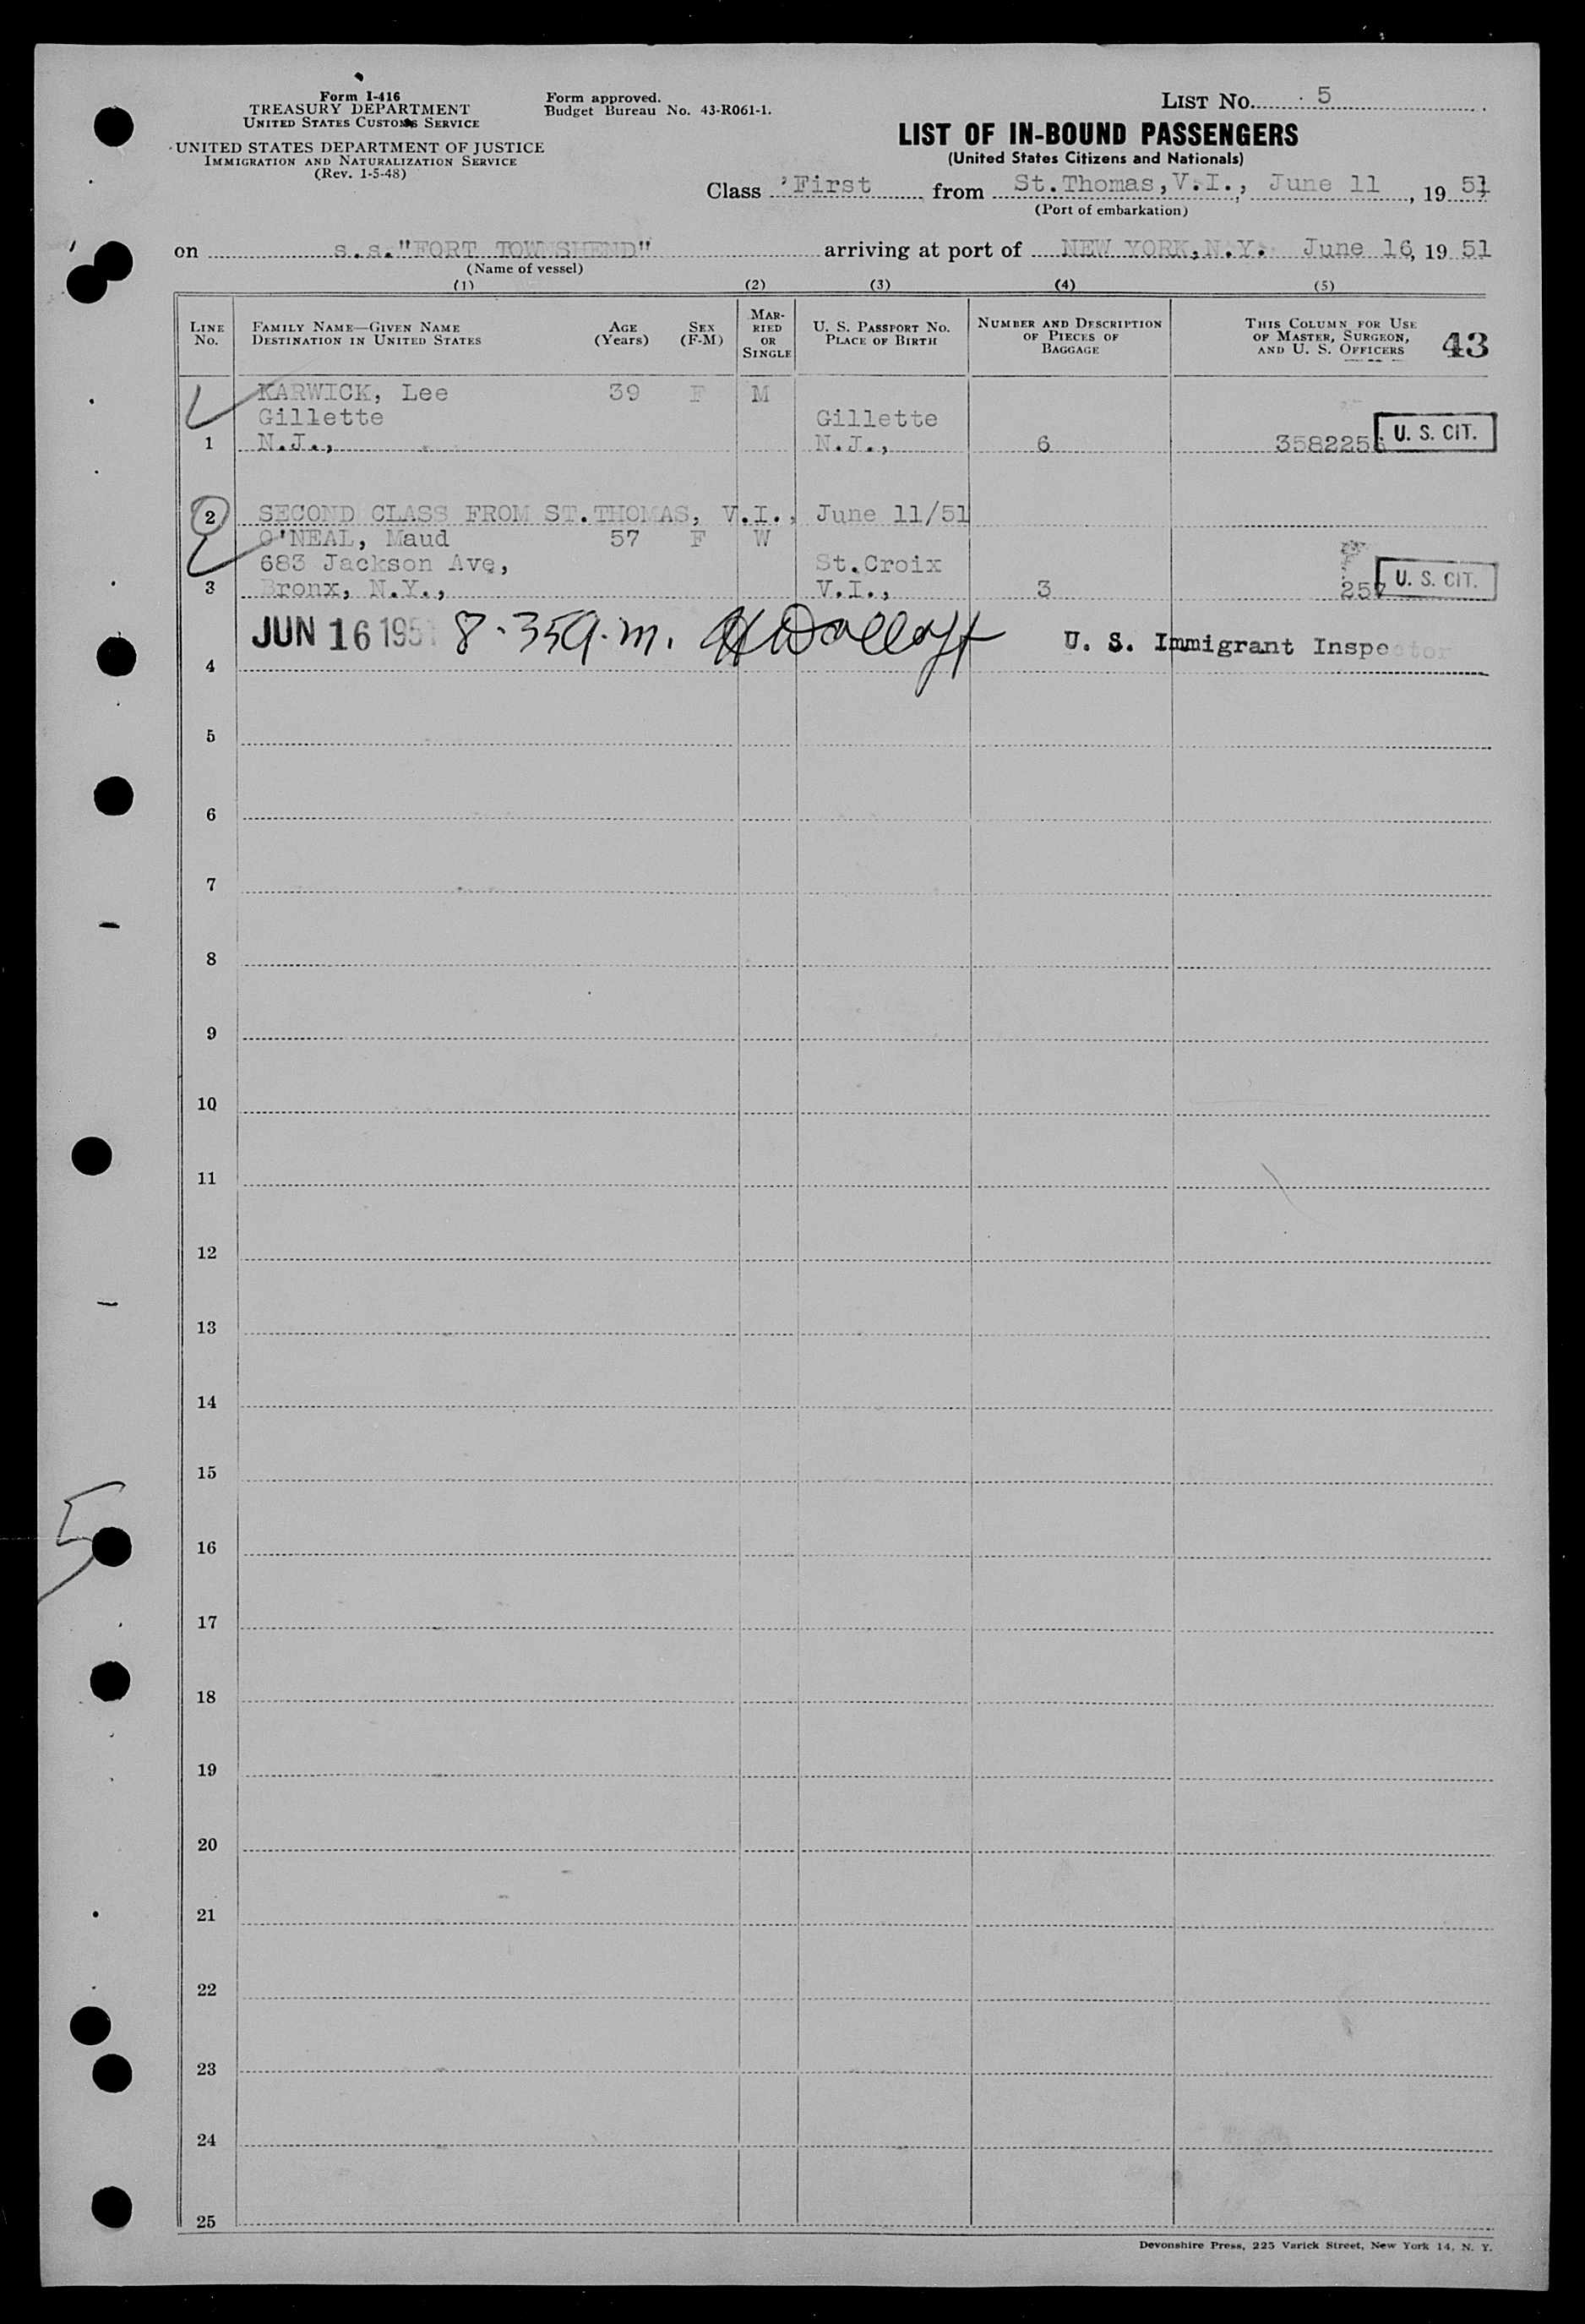 Form I-416
TREASURY DEPARTMENT
UNITED STATES CUSTOMS SERVICE
UNITED STATES DEPARTMENT OF JUSTICE
IMMIGRATION AND NATURALIZATION SERVICE
(Rev. 1-5-48)
Form approved.
Budget Bureau No. 43-R061-1.
LIST NO. 5
LIST OF IN-BOUND PASSENGERS
(United States Citizens and Nationals)
Class First from St.Thomas,V.I., June 11, 1951
(Port of embarkation)
on s.s."FORT TOWNSHEND" arriving at port of NEW YORK,N.Y. June 16, 1951
(Name of vessel)
(1) (2) (3) (4) (5)
LINE NO. FAMILY NAME—GIVEN NAME DESTINATION IN UNITED STATES AGE (Years) SEX (F-M) MARRIED OR SINGLE U. S. PASSPORT NO. PLACE OF BIRTH NUMBER AND DESCRIPTION OF PIECES OF BAGGAGE THIS COLUMN FOR USE OF MASTER, SURGEON, AND U. S. OFFICERS 43
KARWICK, Lee 39 F M
Gillette Gillette
1 N.J., N.J., 6 3582256 U. S. CIT.
2 SECOND CLASS FROM ST.THOMAS, V.I., June 11/51
O'NEAL, Maud 57 F W
683 Jackson Ave, St.Croix
3 Bronx, N.Y., V.I., 3 257 U. S. CIT.
JUN 16 1951 8-35a.m. U. S. Immigrant Inspector
4
5
6
7
8
9
10
11
12
13
14
15
5
16
17
18
19
20
21
22
23
24
25
Devonshire Press, 225 Varick Street, New York 14, N. Y.